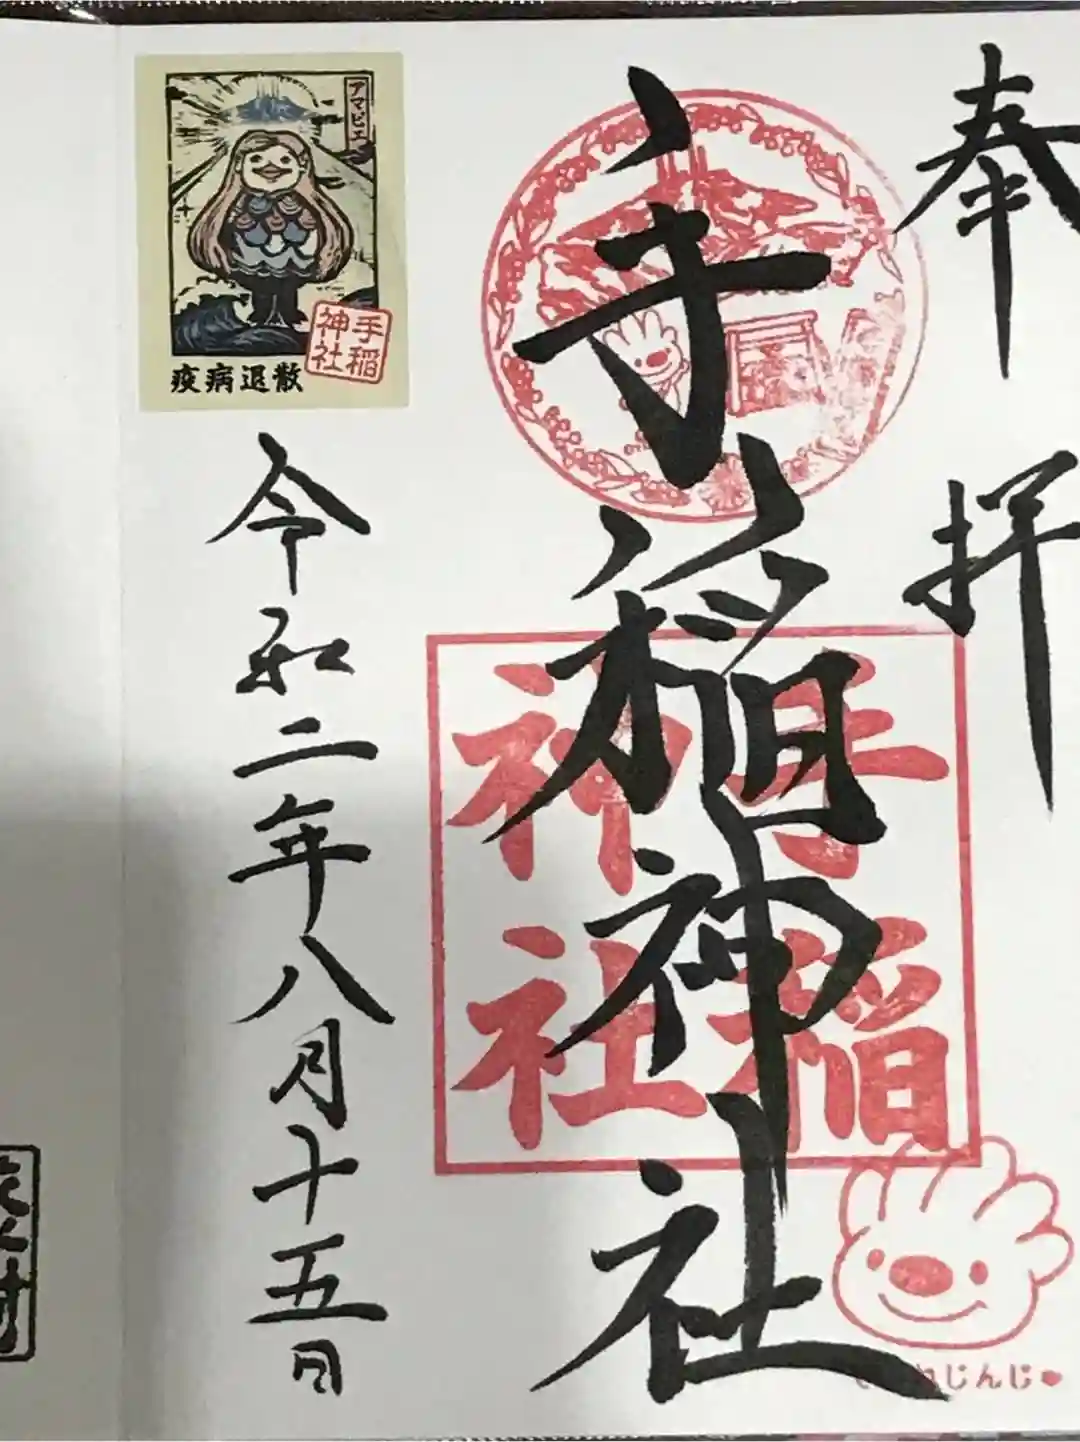 奉拝
手稲神社
手稲
神社
ていねじんじゃ
アマビエ
疫病退散
手稲
神社
令和二年八月十五日